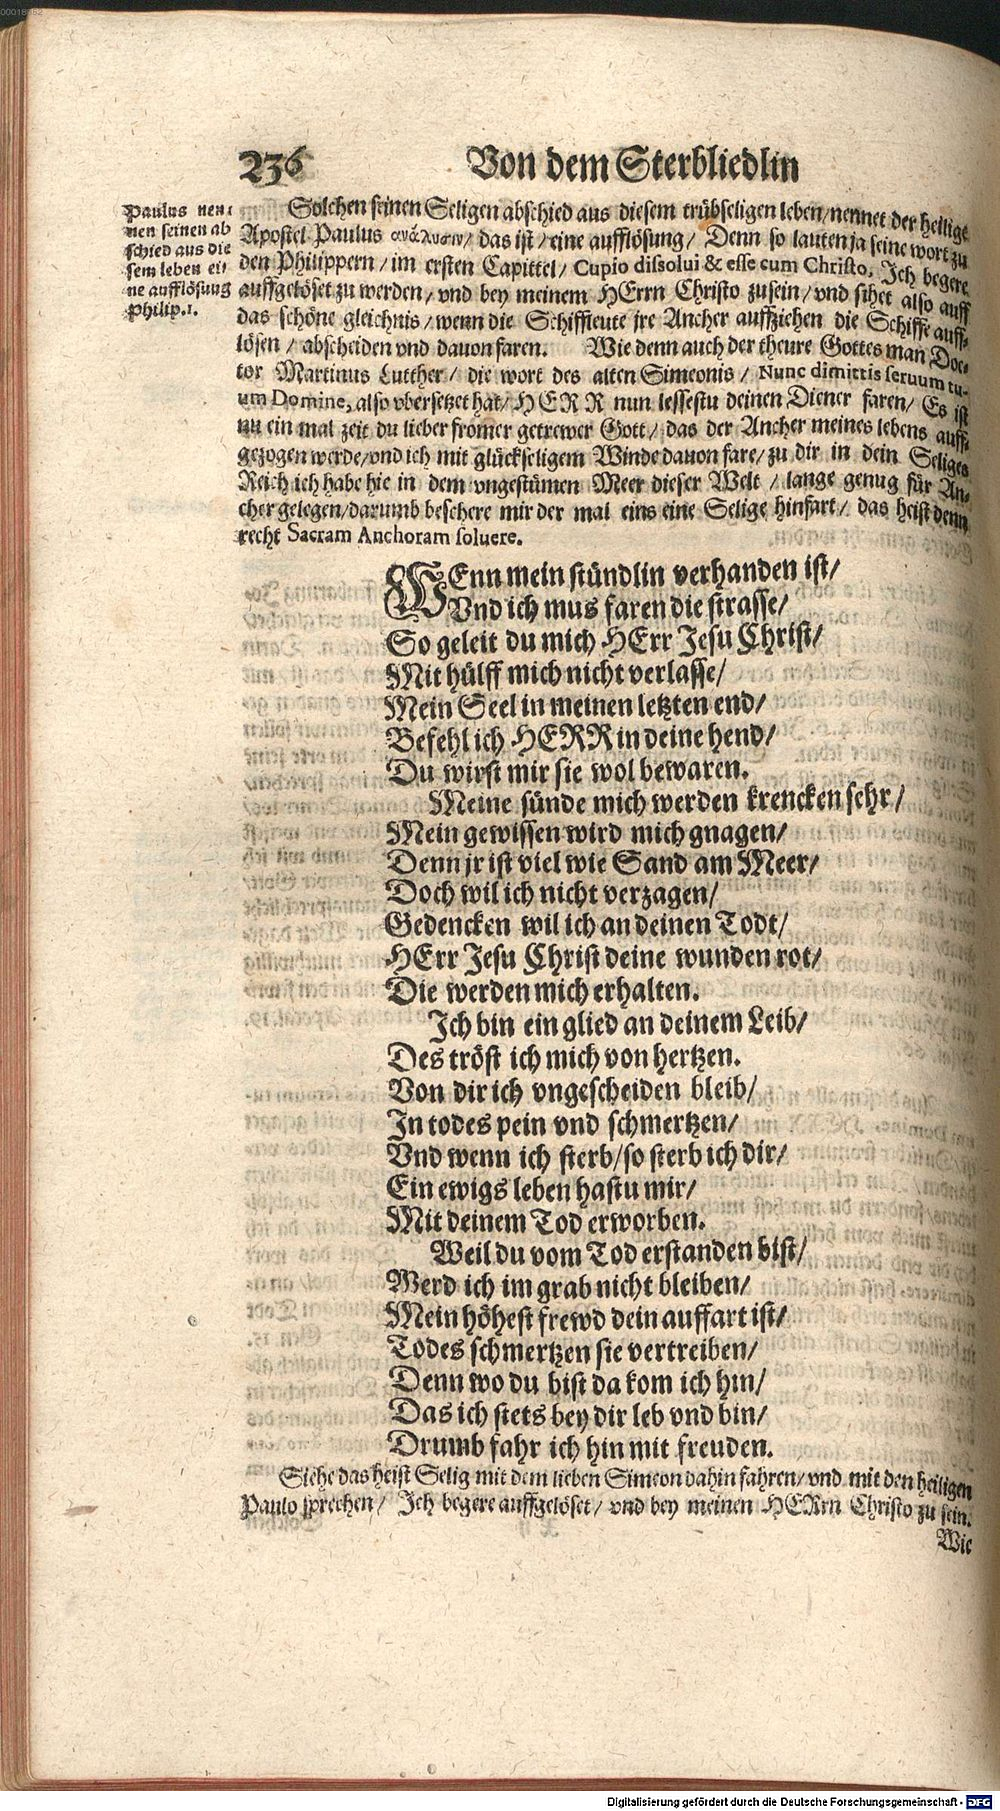 00018462
236 Von dem Sterbliedlin
Paulus nen⸗
nen seinen ab
schied aus die
sem leben ei⸗
ne aufflösung
Philip. 1.
Solchen seinen Seligen abschied aus diesem trübseligen leben/nennet der heilige
Apostel Paulus ανάλυσιν/ das ist/eine aufflösung/ Denn so lauten ja seine wort zu
den Philippern/im ersten Capittel/ Cupio dissolui & esse cum Christo. Ich begere
auffgelöset zu werden/vnd bey meinem HErrn Christo zusein/vnd sihet also auff
das schöne gleichnis/wenn die Schiffleute jre Ancher auffziehen die Schiffe auff⸗
lösen/ abscheiden vnd dauon faren. Wie denn auch der theure Gottes man Doc⸗
tor Martinus Lutther/ die wort des alten Simeonis/ Nunc dimittis seruum tu-
um Domine, also vbersetzet hat/HERR nun lessestu deinen Diener faren/ Es ist
nu ein mal zeit du lieber fromer getrewer Gott/ das der Ancher meines lebens auff⸗
gezogen werde/vnd ich mit glückseligem Winde dauon fare/zu dir in dein Seliges
Reich ich habe hie in dem vngestümen Meer dieser Welt/ lange genug für An⸗
cher gelegen/darumb beschere mir der mal eins eine Selige hinfart/ das heist denn
recht Sacram Anchoram soluere.
WEnn mein stündlin verhanden ist/
Vnd ich mus faren die strasse/
So geleit du mich HErr Jesu Christ/
Mit hülff mich nicht verlasse/
Mein Seel in meinen letzten end/
Befehl ich HERR in deine hend/
Du wirst mir sie wol bewaren.
Meine sünde mich werden krencken sehr/
Mein gewissen wird mich gnagen/
Denn jr ist viel wie Sand am Meer/
Doch wil ich nicht verzagen/
Gedencken wil ich an deinen Todt/
HErr Jesu Christ deine wunden rot/
Die werden mich erhalten.
Ich bin ein glied an deinem Leib/
Des tröst ich mich von hertzen.
Von dir ich vngescheiden bleib/
In todes pein vnd schmertzen/
Vnd wenn ich sterb/so sterb ich dir/
Ein ewigs leben hastu mir/
Mit deinem Tod erworben.
Weil du vom Tod erstanden bist/
Werd ich im grab nicht bleiben/
Mein höhest frewd dein auffart ist/
Todes schmertzen sie vertreiben/
Denn wo du bist da kom ich hin/
Das ich stets bey dir leb vnd bin/
Drumb fahr ich hin mit freuden.
Siehe das heist Selig mit dem lieben Simeon dahin fahren/vnd mit den heiligen
Paulo sprechen/ Ich begere auffgelöset/ vnd bey meinen HERrn Christo zu sein.
Wie
Digitalisierung gefördert durch die Deutsche Forschungsgemeinschaft - DFG